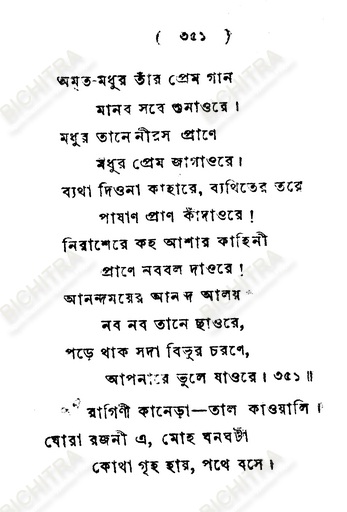 ( ৩৫১ )
অমৃত-মধুর তাঁর প্রেম গান
মানব সবে শুনাওরে।
মধুর তানে নীরস প্রাণে
মধুর প্রেম জাগাওরে।
ব্যথা দিওনা কাহারে, ব্যথিতের তরে
পাষাণ প্রাণ কাঁদাওরে!
নিরাশেরে কহ আশার কাহিনী
প্রাণে নববল দাওরে!
আনন্দময়ের আনন্দ আলয়
নব নব তানে ছাওরে,
পড়ে থাক সদা বিভুর চরণে,
আপনারে ভুলে যাওরে। ৩৫১॥
রাগিণী কানেড়া—তাল কাওয়ালি।
ঘোরা রজনী এ, মোহ ঘনঘটা
কোথা গৃহ হায়, পথে বসে।
BICHITRA